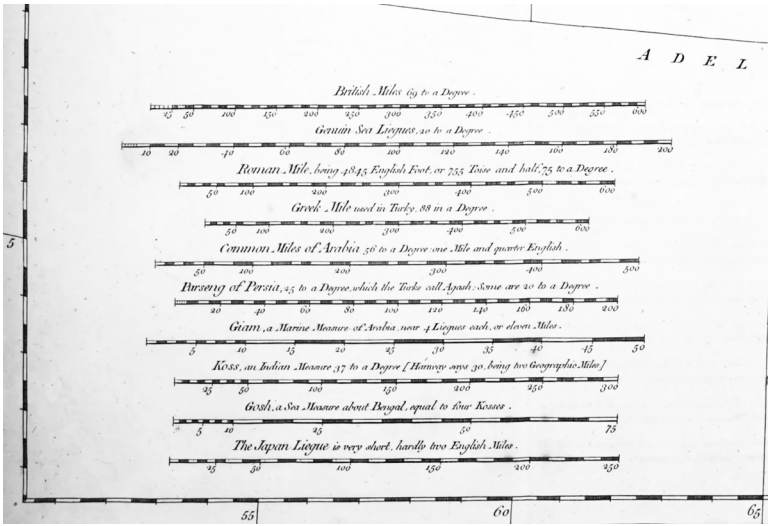 ADEL
British Miles 69 to a Degree.
25 50 100 150 200 250 300 350 400 450 500 550 600
Genuin Sea Liegues, 20 to a Degree.
10 20 40 60 80 100 120 140 160 180 200
Roman Mile, being 4845 English Foot, or 755 Toise and half, 75 to a Degree.
50 100 200 300 400 500 600
Greek Mile used in Turky, 88 in a Degree.
50 100 200 300 400 500 600
5
Common Miles of Arabia 56 to a Degree: one Mile and quarter English.
50 100 200 300 400 500
Parseng of Persia, 25 to a Degree, which the Turks call Agash: Some are 20 to a Degree.
20 40 60 80 100 120 140 160 180 200
Giam, a Marine Measure of Arabia, near 4 Liegues each, or eleven Miles.
5 10 15 20 25 30 35 40 45 50
Koss, an Indian Measure 37 to a Degree [Hanway says 30, being two Geographic Miles]
25 50 100 150 200 250 300
Gosh, a Sea Measure about Bengal, equal to four Kosses.
5 10 25 50 75
The Japan Liegue is very short, hardly two English Miles.
25 50 100 150 200 250
55 60 65